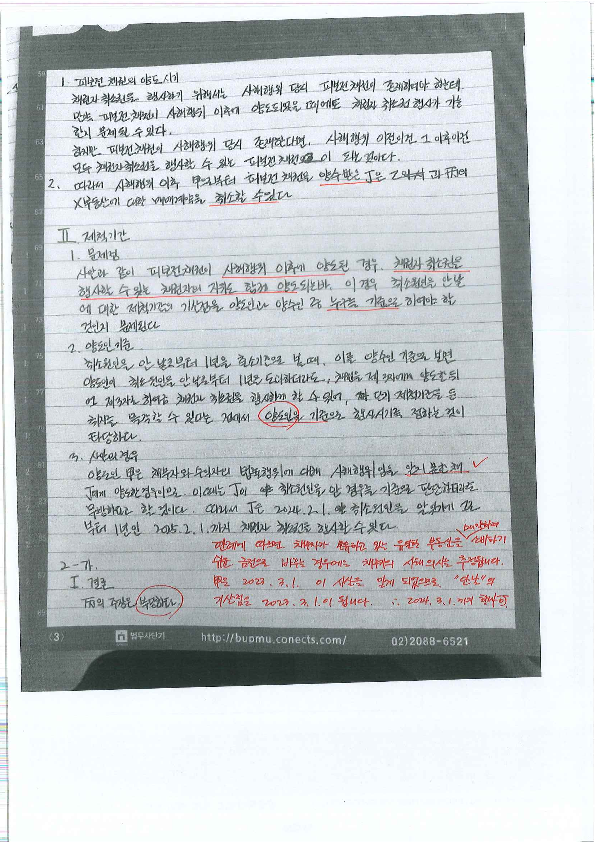 1. 피보전 채권의 양도시기
채권자취소권을 행사하기 위해서는 사해행위 당시 피보전채권이 존재하여야 하는데,
만약 피보전채권이 사해행위 이후에 양도되었을 때에도 채권자 취소권 행사가 가능
한지 문제될 수 있다.
하지만 피보전채권이 사해행위 당시 존재한다면, 사해행위 이전이건 그 이후이건
모두 채권자취소권을 행사할 수 있는 피보전채권이 되는 것이다.
2. 따라서 사해행위 이후 甲으로부터 피보전 채권을 양수받은 J은 乙과 丙의
X부동산에 대한 매매계약을 취소할 수 있다
Ⅱ 제척기간
1. 문제점
사안과 같이 피보전채권이 사해행위 이후에 양도된 경우, 채권자취소권을
행사할 수 있는 채권자의 지위도 함께 양도되는바, 이 경우 취소원인을 안 날
에 대한 제척기간의 기산점을 양도인과 양수인 중 누구를 기준으로 하여야 할
것인지 문제된다
2. 양도인 기준
취소원인을 안 날로부터 1년을 기준으로 볼 때, 이를 양수인 기준으로 보면
양도인이 취소원인을 안 날로부터 1년을 도과하더라도, 채권을 제3자에게 양도한 뒤
제3자로 하여금 채권자 취소권을 행사하게 할 수 있어, 단기 제척기간을 둔
취지를 몰각할 수 있다는 점에서 양도인을 기준으로 행사시기를 정하는 것이
타당하다.
3. 사안의 경우
양도인 甲은 채무자와 수익자의 법률행위에 대해 사해행위임을 알지 못한 채
J에게 양도한 경우이므로, 이 때는 J이 취소원인을 안 경우를 기준으로 판단하더라도
무방하다고 할 것이다. 따라서 J은 2024. 2. 1. 취소원인을 알았기에 그로
부터 1년인 2025. 2. 1. 까지 채권자 취소권을 행사할 수 있다.
판례에 따르면 채무자가 보유하고 있는 유일한 부동산을 매각하여 소비하기
쉬운 금전으로 바꾸는 경우에는 채무자의 사해의사는 추정됩니다.
2-가.
甲은 2023. 3. 1. 이 사실을 알게 되었으므로 "안 날"의
Ⅰ 결론
기산점은 2023. 3. 1. 이 됩니다. ∴ 2024. 3. 1. 까지 행사 可
丙의 주장은 부당하다.
(3)
법무사단기
http://bupmu.conects.com/
02)2088-6521